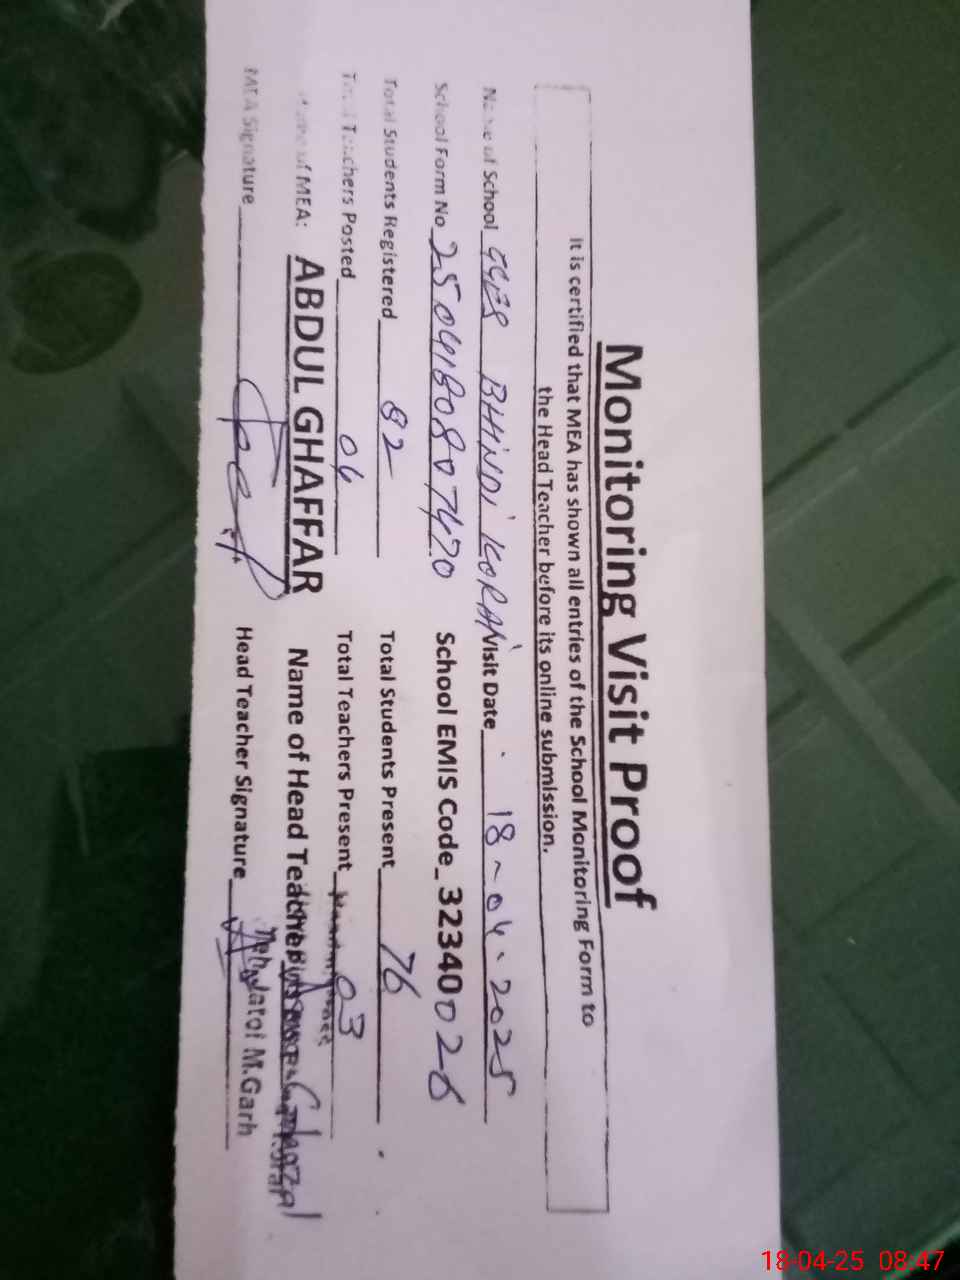 Monitoring Visit Proof
It is certified that MEA has shown all entries of the School Monitoring Form to
the Head Teacher before its online submission.
Name of School GGES BHINDI KORAI Visit Date 18-04-2025
School Form No 2504180807470 School EMIS Code 32340026
Total Students Registered 82 Total Students Present 76
Total Teachers Posted 04 Total Teachers Present 03
Name of MEA: ABDUL GHAFFAR Name of Head Teacher
MEA Signature Head Teacher Signature
M.Garh
18-04-25 08:47